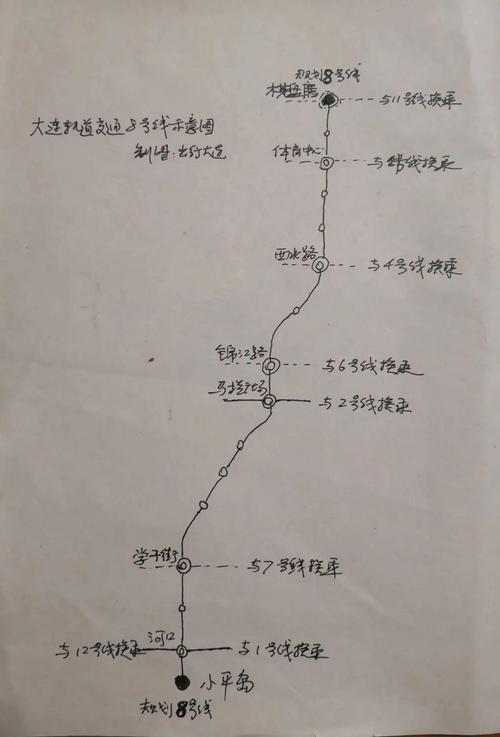 规划8号线
棋盘磨 与11号线换乘
大连轨道交通8号线示意图
制图:出行大连
体育中心 与 号线换乘
西北路 与4号线换乘
锦江路 与6号线换乘
马栏广场 与2号线换乘
学子街 与7号线换乘
与12号线换乘 河口 与1号线换乘
小平岛
规划8号线